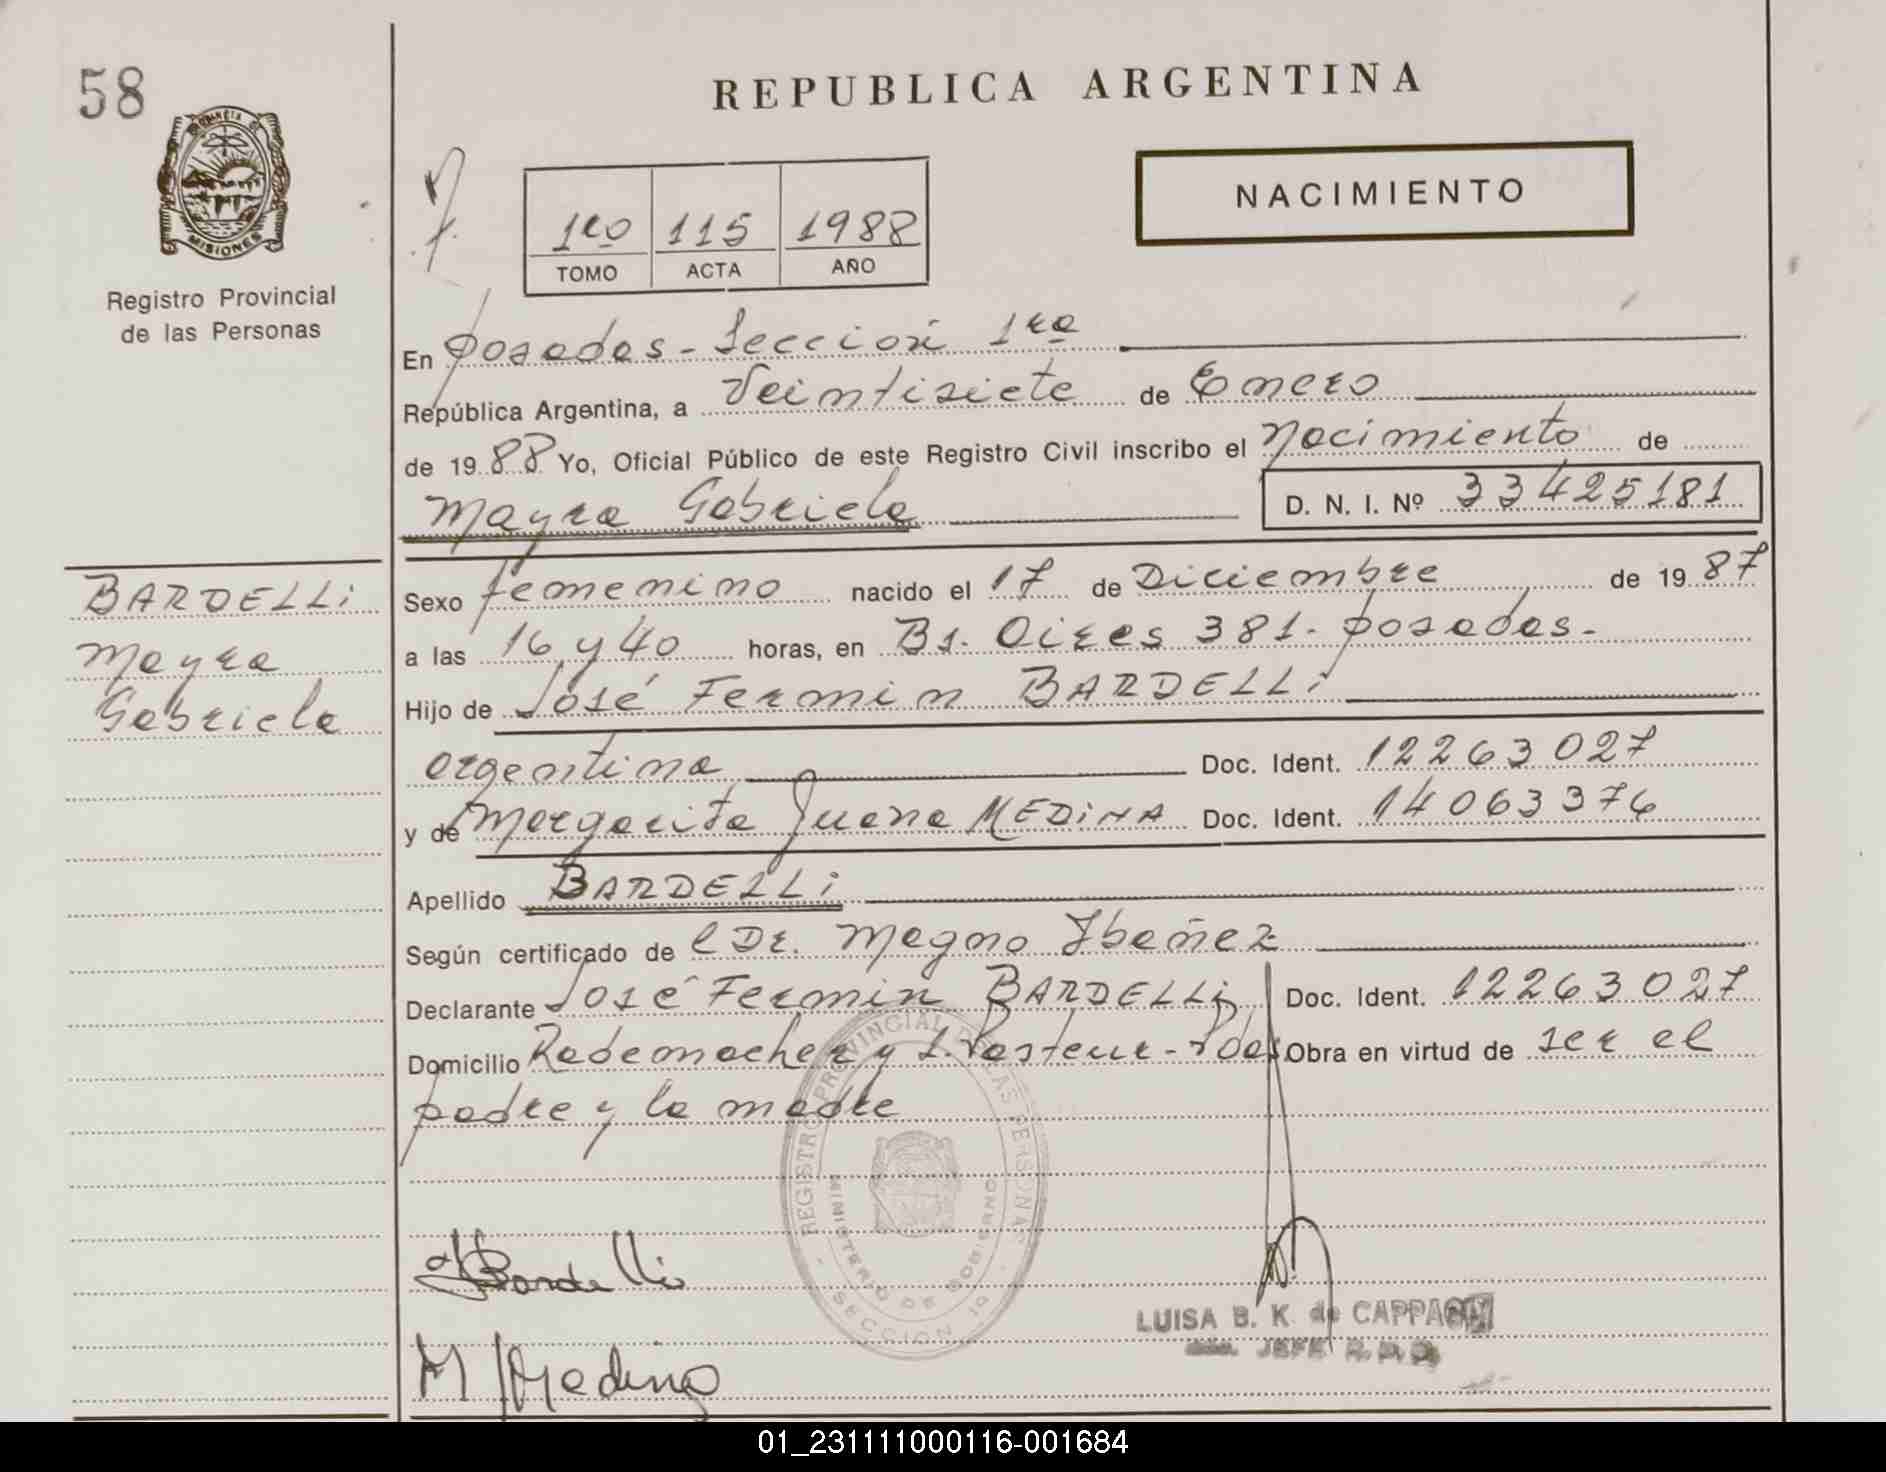 58
REPUBLICA ARGENTINA
PROVINCIA DE
MISIONES
Registro Provincial
de las Personas
1ro 115 1988
TOMO ACTA AÑO
NACIMIENTO
En Posadas - Sección 1ra
República Argentina, a Veintisiete de Enero
de 1988 Yo, Oficial Público de este Registro Civil inscribo el Nacimiento de
Mayra Gabriela D. N. I. Nº 33425181
BARDELLi
Mayra
Gabriela
Sexo femenino nacido el 17 de Diciembre de 1987
a las 16 y 40 horas, en Bs. Aires 381 - Posadas -
Hijo de José Fermin BARDELLi
argentina Doc. Ident. 12263027
y de Margarita Juana MEDiNA Doc. Ident. 14063376
Apellido BARDELLi
Según certificado de l Dr. Magno Ibañez
Declarante José Fermin BARDELLi Doc. Ident. 12263027
Domicilio Rademacher y L. Pasteur - Pdas Obra en virtud de ser el
padre y la madre
REGISTRO PROVINCIAL DE LAS PERSONAS
MINISTERIO DE GOBIERNO
SECCION 1º
Bardelli
M Medina
LUISA B. K. de
JEFE
01_231111000116-001684